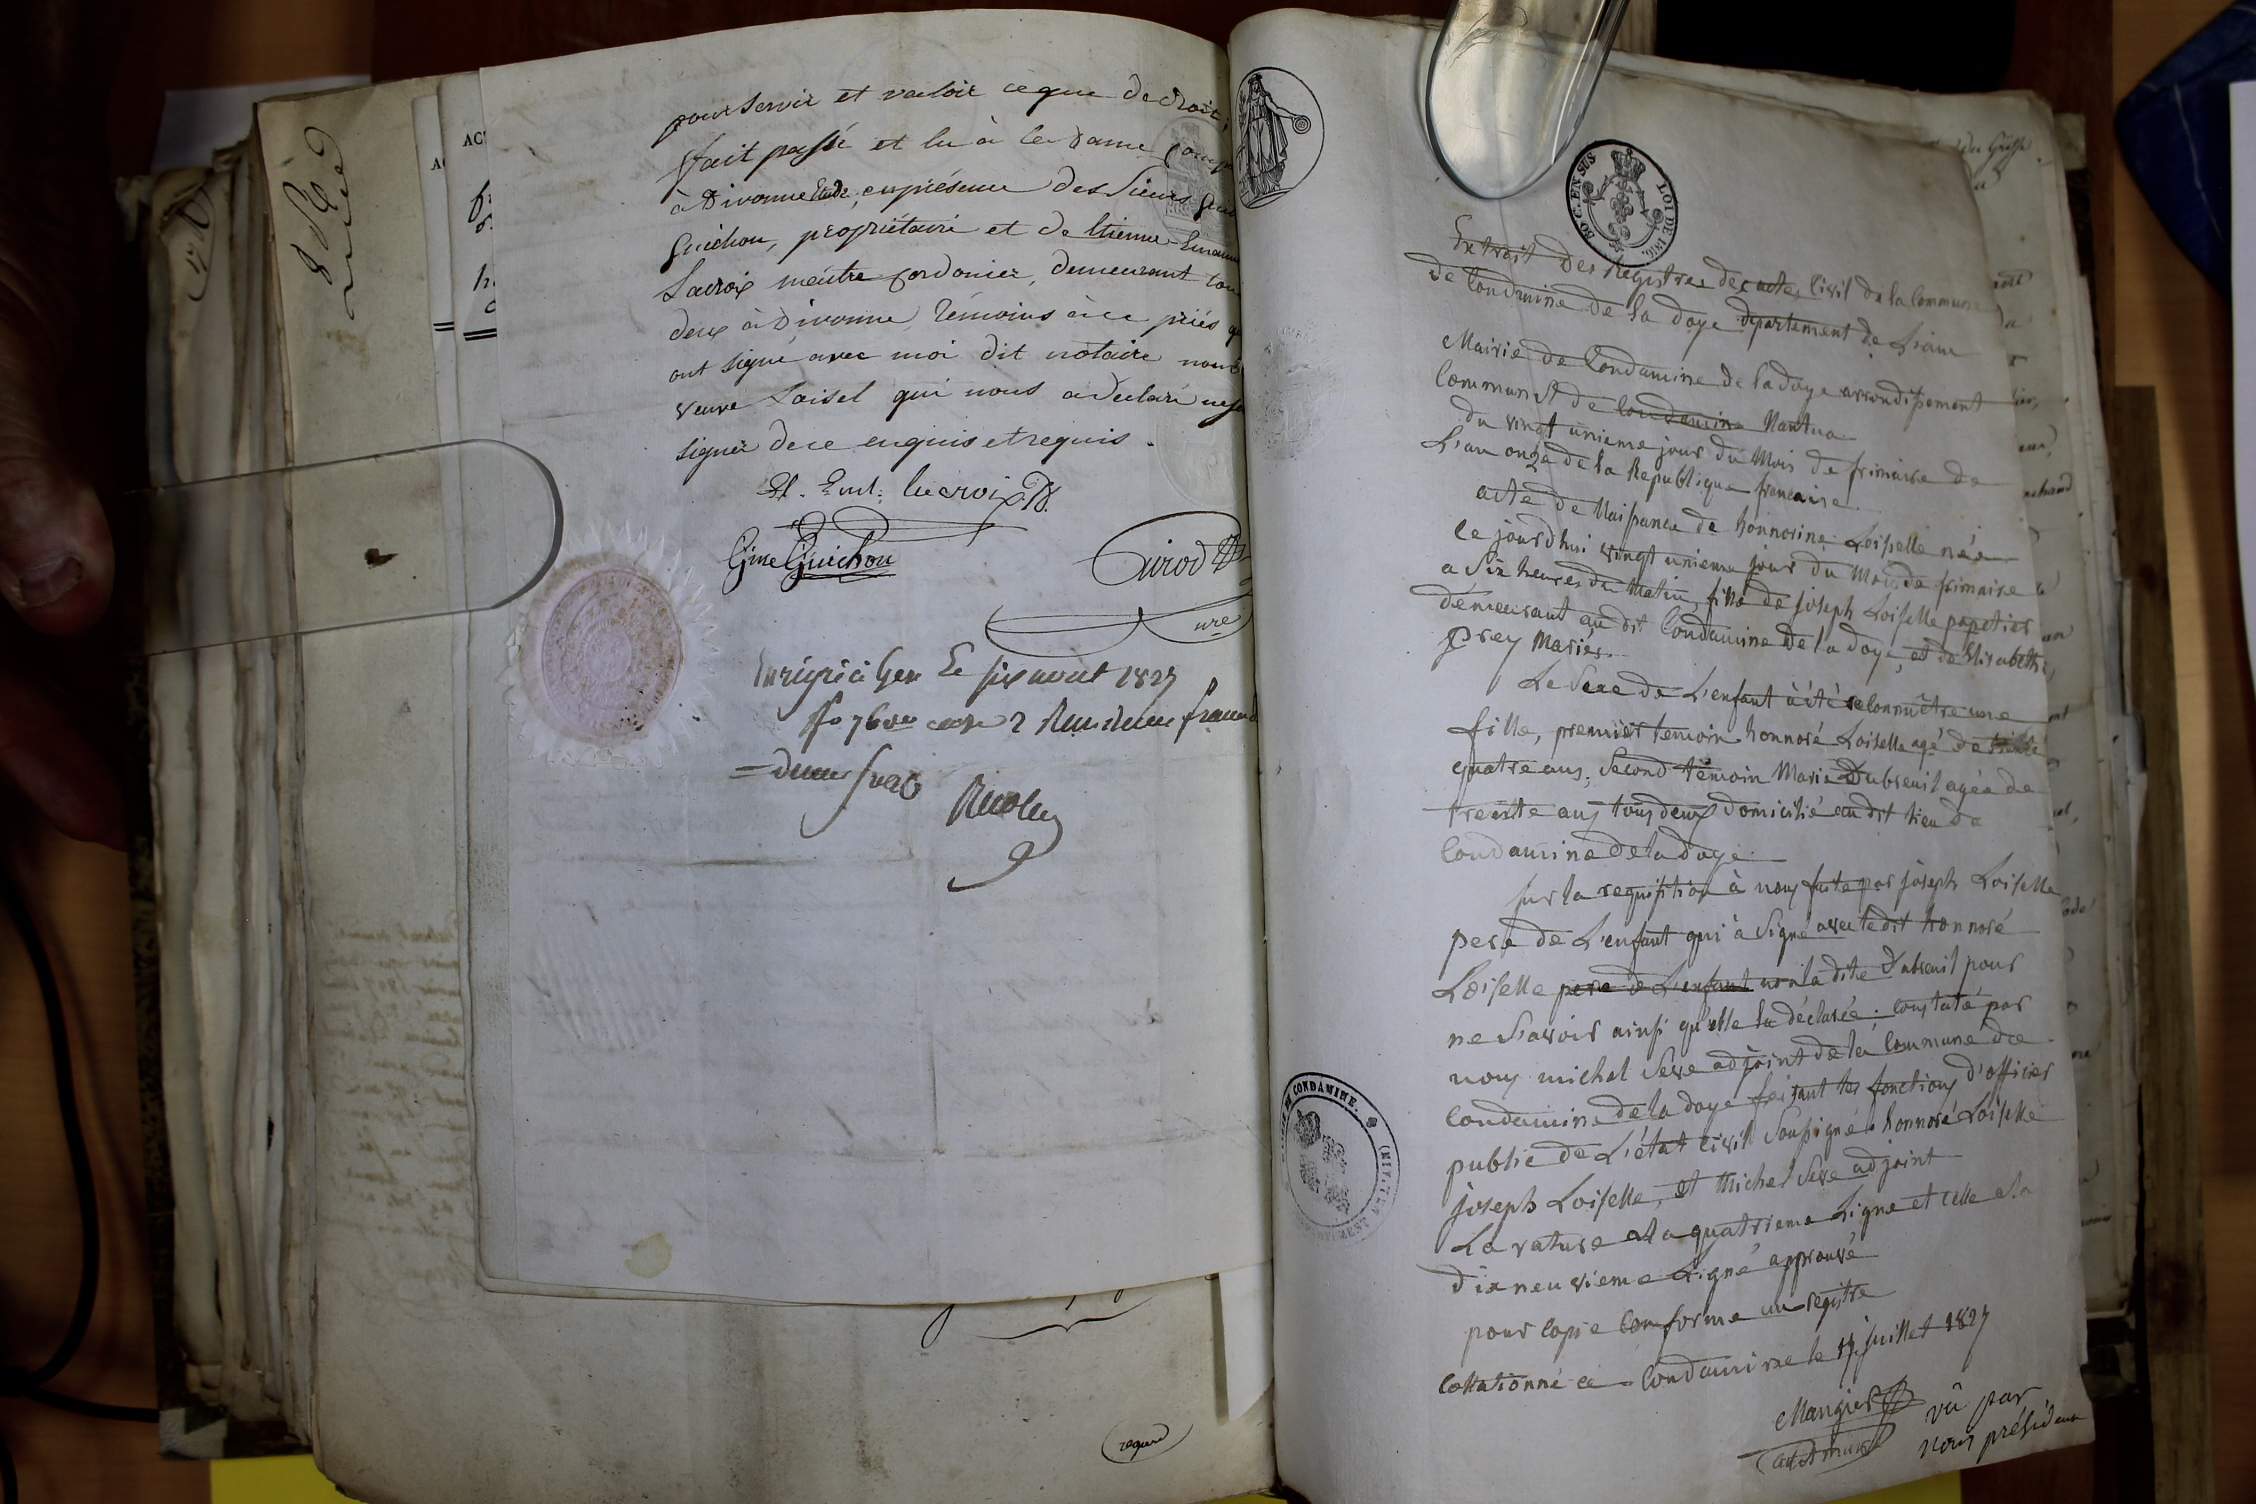 pour servir et valoir ce que de droit;
fait passé et lu à la dame
à Divonne étude, en présence des Sieurs
Guichon, propriétaire et de Etienne
Lacroix meitre cordonier, demeurant
deux à Divonne, témoins à ce priés
ont signé avec moi dit notaire non
veuve Loisel qui nous a déclaré
signer de ce enquis et requis.
Et. Eml: lacroix
Guichon
Girod
nre
Enrigré à Gex le six aout 1827
deux francs
regard
AC
BOC. EN SUS
LOI DE 1816.
Extrait des Registres des actes Civil de la Commune
de Condamine de la doye département de L'ain
Mairie de Condamine de la doye arrondissement
Communal de Condamine Nantua
du vingt unieme jour du Mois de frimaire de
L'an onze de la Republique francaise.
acte de Naissance de honnorine Loiselle née
ce jourd'hui vingt unieme jour du Mois de frimaire
a Six heures du Matin, fille de joseph Loiselle papetier
démeurant au dit Condamine de la doye, et de Elisabeth
prey Mariés.
Le Sexe de L'enfant à été reconnuêtre une
fille, premier temoin honnoré Loiselle agé de trente
quatre ans, Second témoin Marie Dubreuil agée de
treinte ans tous deux domicilié au dit lieu de
Condamine de la doye.
Sur la requisition à nous faite par joseph Loiselle
pere de L'enfant qui à Signé avec le dit honnoré
Loiselle pere de L'enfant non la dite Dubreuil pour
ne Savoir ainsi qu'elle la déclarée. constaté par
nous michel Seve adjoint de la Commune de
Condamine de la doye faisant les fonctions d'officier
public de L'état civil Soussigné honnoré Loiselle
joseph Loiselle, et Michel Seve adjoint
La rature a la quatrieme Ligne et celle a la
dix neuvieme Ligne approuvé
pour Copie Conforme au registre
Collationné a Condamine le 17 juillet 1827
Mangier
vû par
nous président
CONDAMINE.